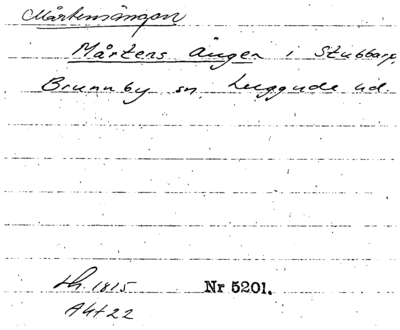 Mårtensängen
Mårtens ängen i Stubbarp,
Brunnby sn, Luggude hd.
Lh. 1815 Nr 5201.
Akt 22